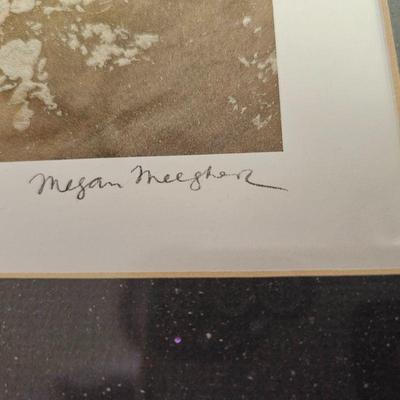 Megan Meegher